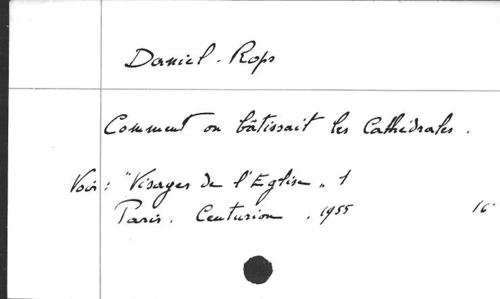 Daniel-Rops
Comment on bâtissait les Cathédrales.
Voir : "Visages de l'Eglise" 1
Paris. Centurion. 1955 16°